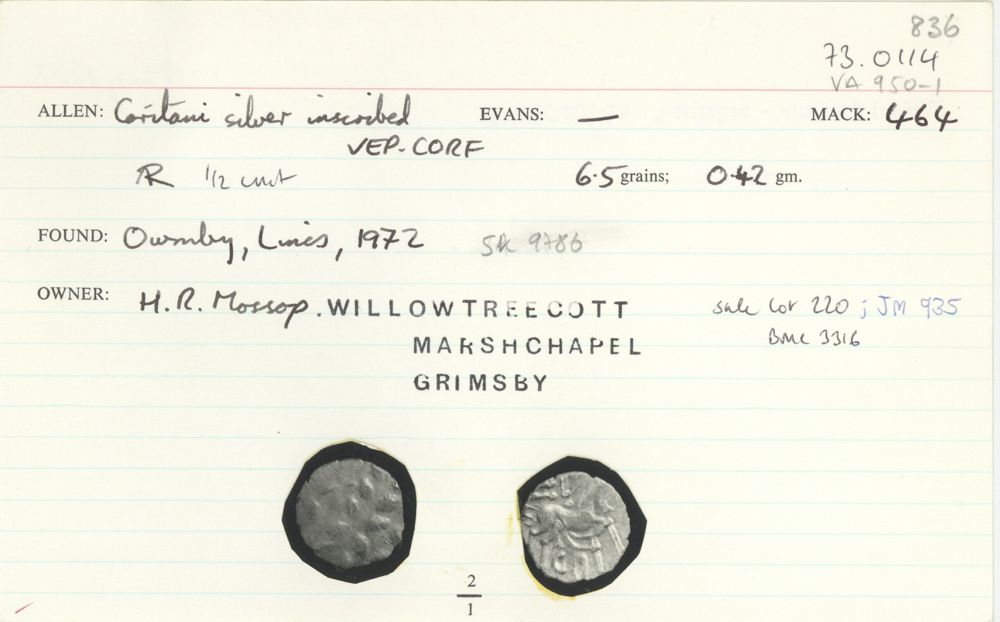 836
73.0114
VA 950-1
ALLEN: Coritani silver inscribed EVANS: — MACK: 464
VEP-CORF
AR 1/2 unit 6.5 grains; 0.42 gm.
FOUND: Owmby, Lincs, 1972 SA 9786
OWNER: H.R. Mossop. WILLOWTREECOTT sale lot 220; JM 935
MARSHCHAPEL BMC 3316
GRIMSBY
2
1